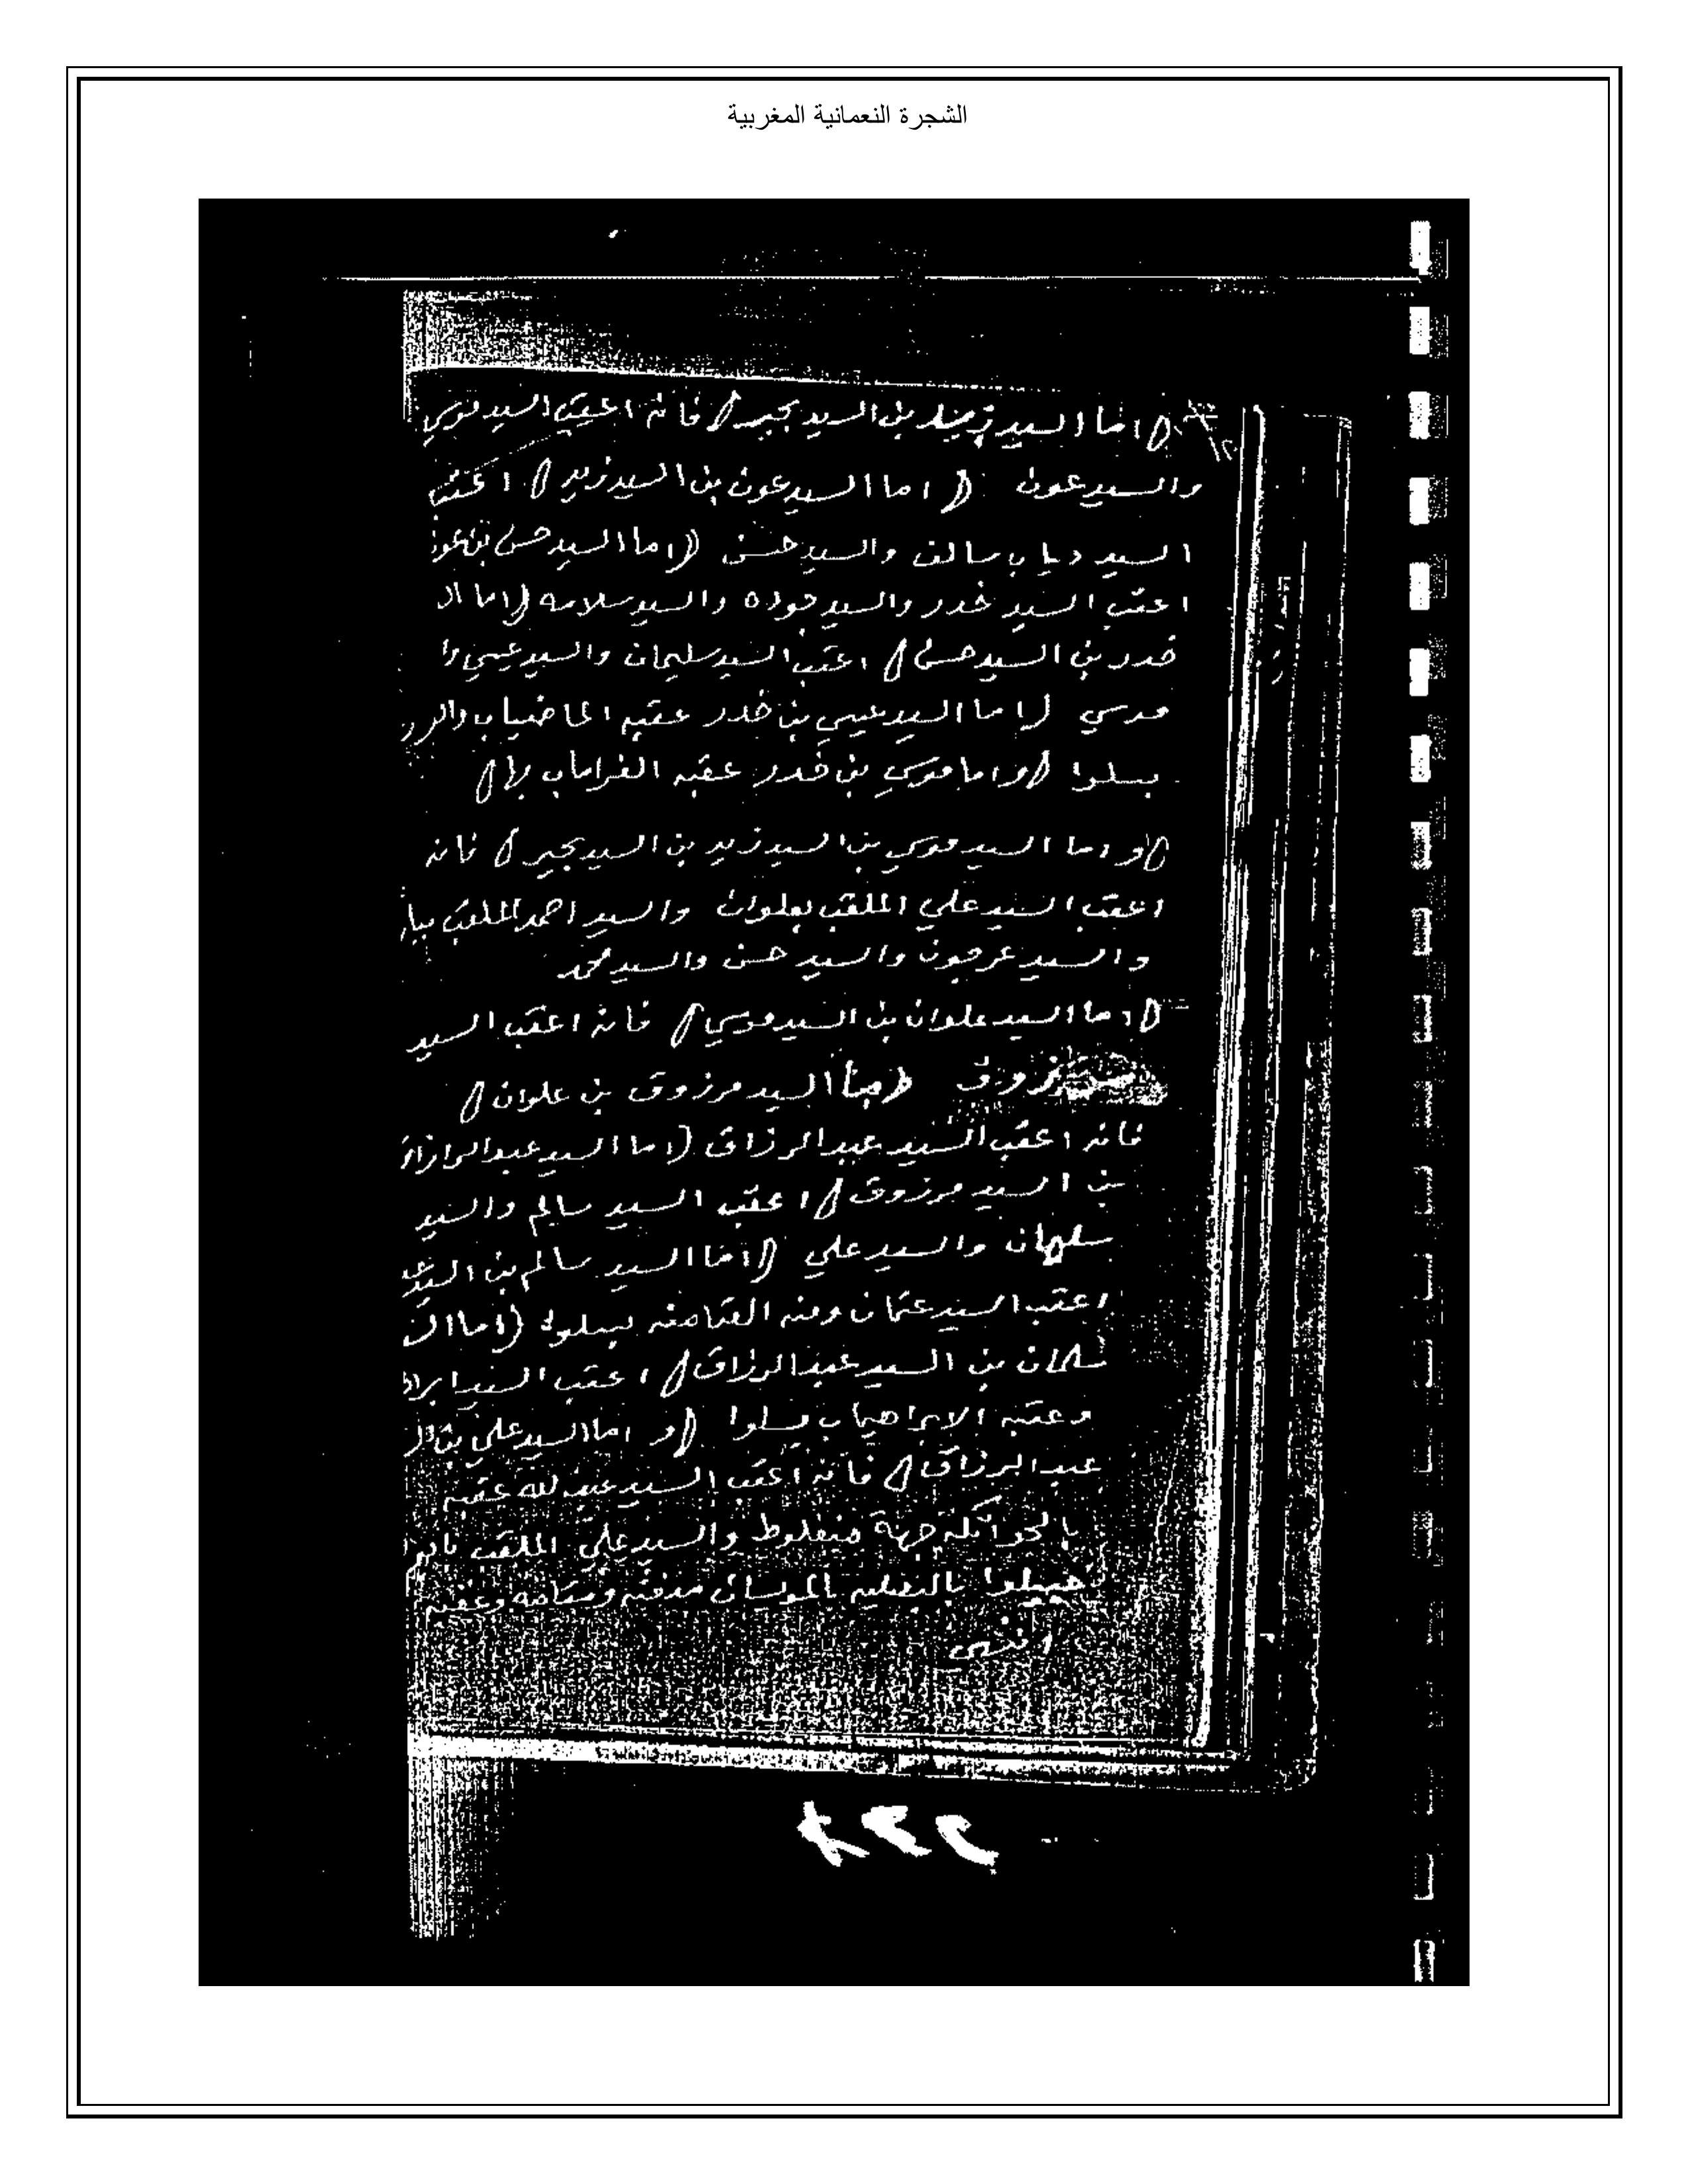 الشجرة النعمانية المغربية
( اما السيد زيد بن السيد بجير ) فانه اعقب السيد موسي
والسيد عون ( اما السيد عون بن السيد زيد ) اعقب
السيد دياب سالف والسيد حسن ( اما السيد حسن بن عون
اعقب السيد خدر والسيد جوده والسيد سلامه ( اما ال
خدر بن السيد حسن ) اعقب السيد سليمان والسيد عيسي وا
موسي ( اما السيد عيسي بن خدر عقبه
بسلوا ( واما موسي بن خدر عقبه بها )
( واما السيد موسي بن السيد زيد بن السيد بجير ) فانه
اعقب السيد علي الملقب بعلوان والسيد احمد الملقب
والسيد عرجون والسيد حسن والسيد محمد
( اما السيد علوان بن السيد موسي ) فانه اعقب السيد
السيد مرزوق بن علوان )
فانه اعقب السيد عبد الرزاق ( اما السيد عبد الرازاق
بن السيد مرزوق ) اعقب السيد سالم والسيد
سلمان والسيد علي ( اما السيد سالم بن السيد عبد
اعقب السيد عثمان ومنه العتامنه بسلوا ( اما ال
سلمان بن السيد عبد الرزاق ) اعقب السيد ابراه
وعقبه الابراهيماب بسلوا ( و اما السيد علي بن ال
عبد الرزاق ) فانه اعقب السيد عبد لله عقبه
بالحواتكة جهة منفلوط والسيد علي الملقب
مدفنه ومقامه وعقبه
انتهى